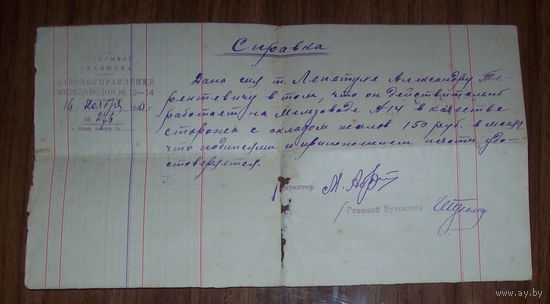 Справка
ЗАВОДОУПРАВЛЕНИЯ
МЕЛЬЗАВОДОВ № 3-14
16 ноября
№ 276
Дана сия т. Лепетухе Александру Те-
рентевичу в том, что он действительно
работает на Мелзаводе № 14 в качестве
сторожа с окладом жалов 150 руб. в месяц
что подписями и приложением печати удо-
стоверяется.
Директор
Главный Бухгалтер
www.ay.by